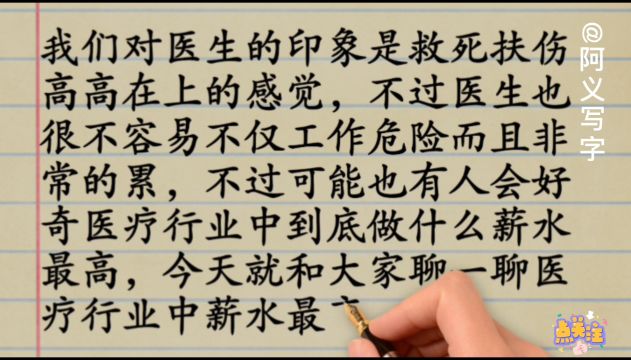 我们对医生的印象是救死扶伤
高高在上的感觉，不过医生也
很不容易不仅工作危险而且非
常的累，不过可能也有人会好
奇医疗行业中到底做什么薪水
最高，今天就和大家聊一聊医
疗行业中薪水最
@阿义写字
点关注